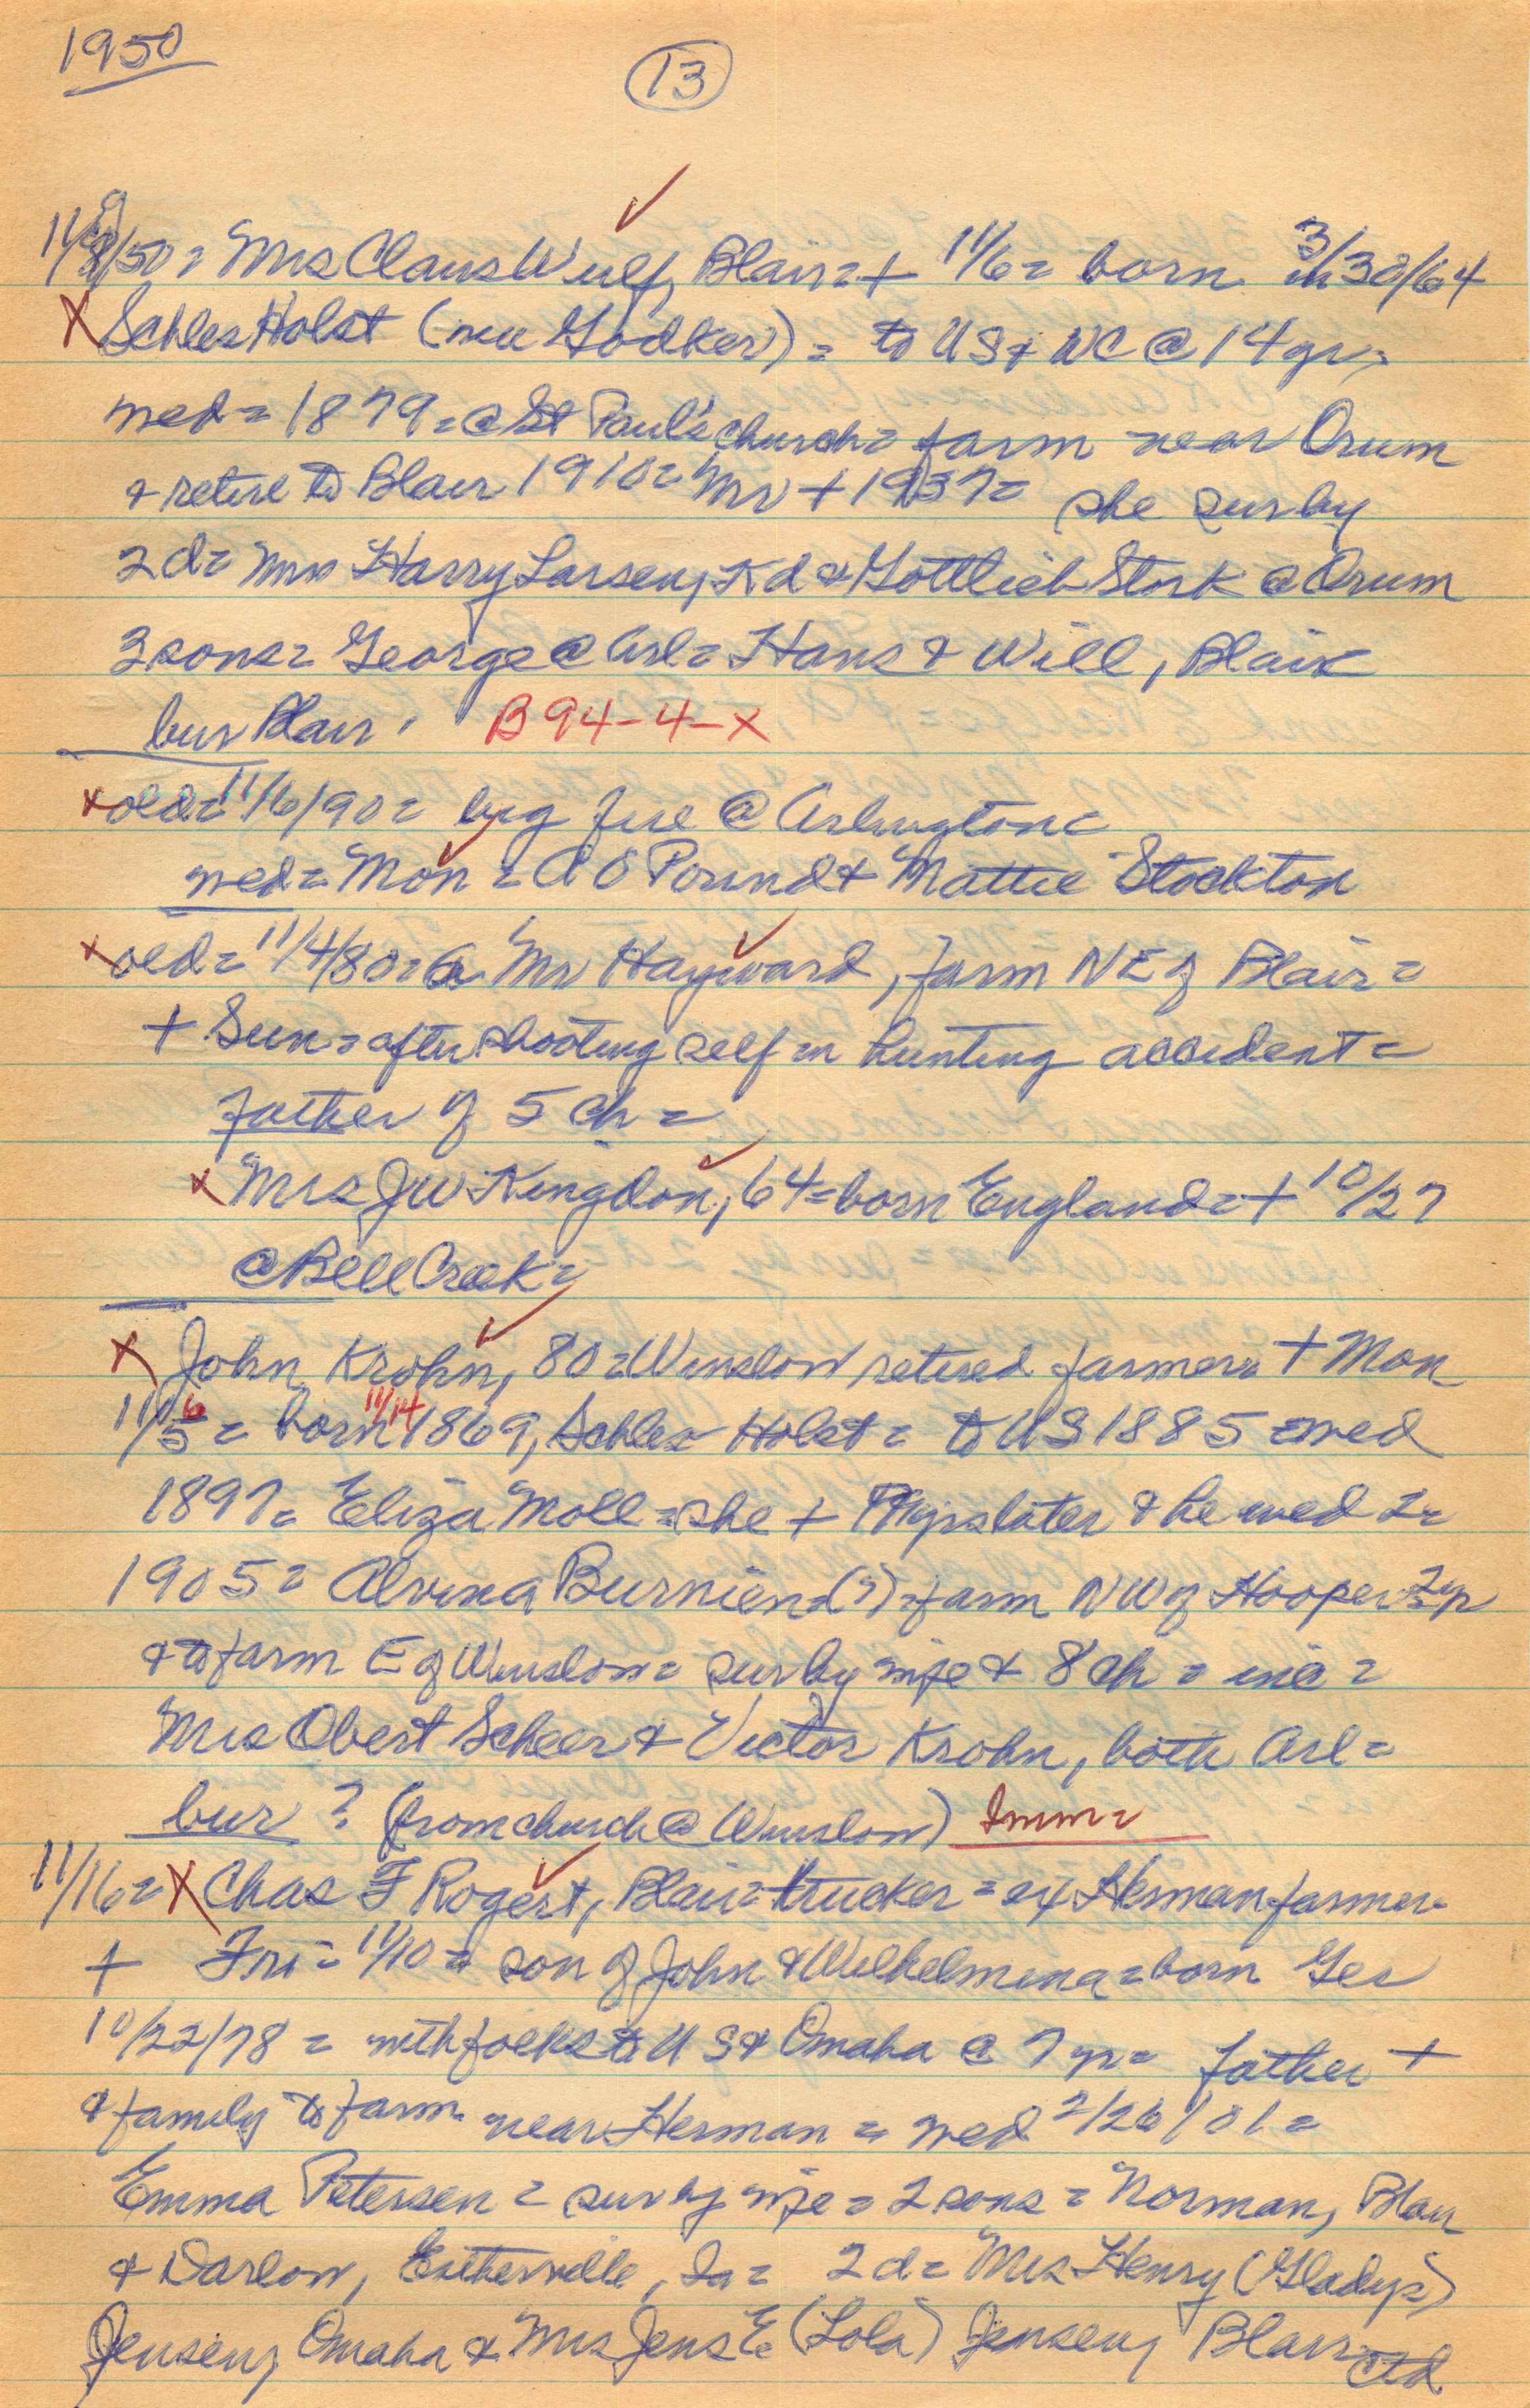 1950
13
11/9/50 = Mrs Claus Wulf, Blair = + 11/6 = born 3/30/64
X Schles Holst (nee Godker) = to US & WC @ 14 yr,
wed = 1879 = @ St Paul's church = farm near Orum
& retire to Blair 1910 = Mr + 1937 = she sur by
2 d = Mrs Harry Larsen, Kd & Gottlieb Stork @ Orum
3 sons = George @ Arl = Hans & Will, Blair
bur Blair. B 94-4-X
x old = 11/6/90 = big fire @ Arlington =
wed = Mon = A O Pound & Mattie Stockton
x old = 11/4/80 = a Mr Hayward, farm NE of Blair =
+ Sun = after shooting self in hunting accident =
father of 5 ch =
x Mrs JW Kingdon, 64 = born England = + 10/27
@ Bell Creek =
X John Krohn, 80 = Winslow retired farmer = + Mon
11/6 = born 11/14 1869, Schles Holst = to US 1885 = wed
1897 = Eliza Moll = she + yrs later & he wed 2 =
1905 = Alvina Burniend (?) = farm NW of Hooper 2 yr
& to farm E of Winslow = sur by wife & 8 ch = inc =
Mrs Obert Scheer & Victor Krohn, both Arl =
bur ? (from church @ Winslow) Imm =
11/16 = X Chas F Rogert, Blair = trucker = ex Herman farmer =
+ Fri = 11/10 = son of John & Wilhelmina = born Ger
10/22/78 = with folks to US & Omaha @ 7 yr = father +
& family to farm near Herman = wed 2/26/01 =
Emma Petersen = sur by wife = 2 sons = Norman, Blair
& Darlow, Estherville, Ia = 2 d = Mrs Henry (Gladys)
Jensen, Omaha & Mrs Jens E (Lola) Jensen, Blair ctd